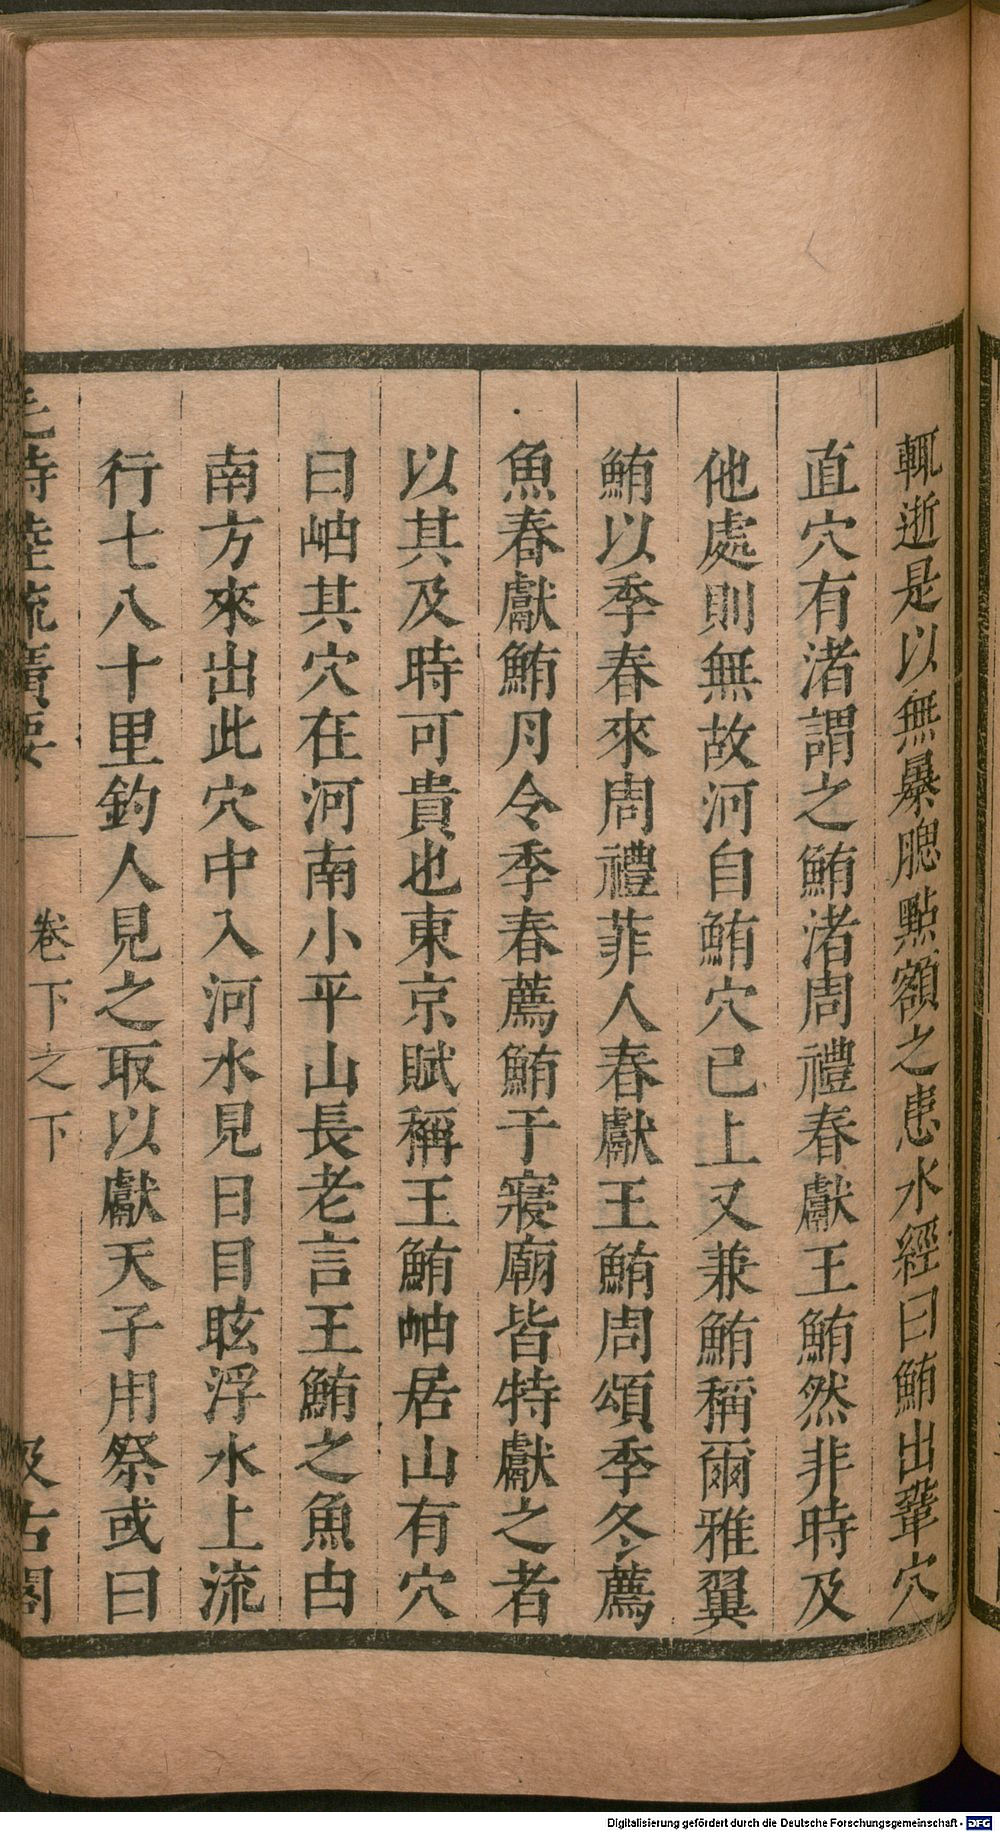 輒逝是以無暴腮點額之患水經曰鮪出鞏穴
直穴有渚謂之鮪渚周禮春獻王鮪然非時及
他處則無故河自鮪穴已上又兼鮪稱爾雅翼
鮪以季春來周禮䱷人春獻王鮪周頌季冬薦
魚春獻鮪月令季春薦鮪于寢廟皆特獻之者
以其及時可貴也東京賦稱王鮪岫居山有穴
曰岫其穴在河南小平山長老言王鮪之魚由
南方來出此穴中入河水見日目眩浮水上流
行七八十里釣人見之取以獻天子用祭或曰
毛詩陸疏廣要
卷下之下
汲古閣
Digitalisierung gefördert durch die Deutsche Forschungsgemeinschaft - DFG